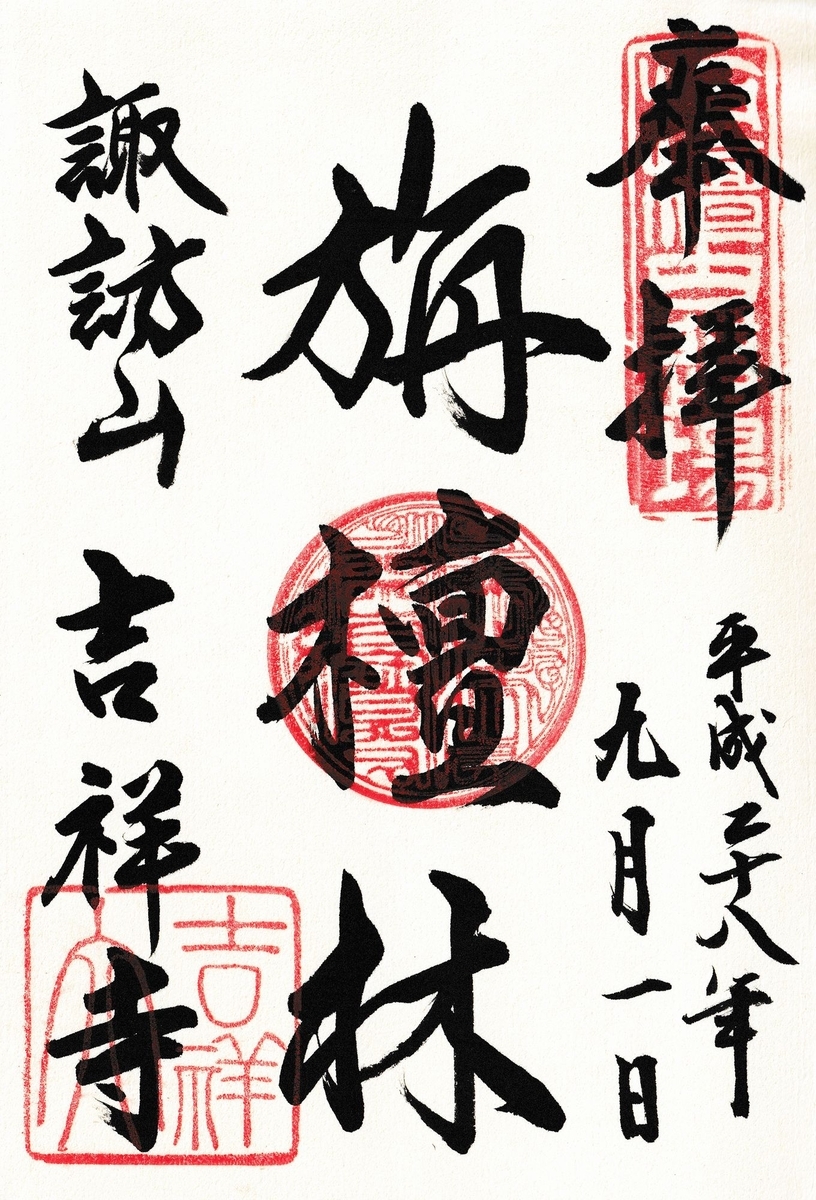 奉拝
平成二十八年
九月一日
旃檀林
諏訪山 吉祥寺
吉祥